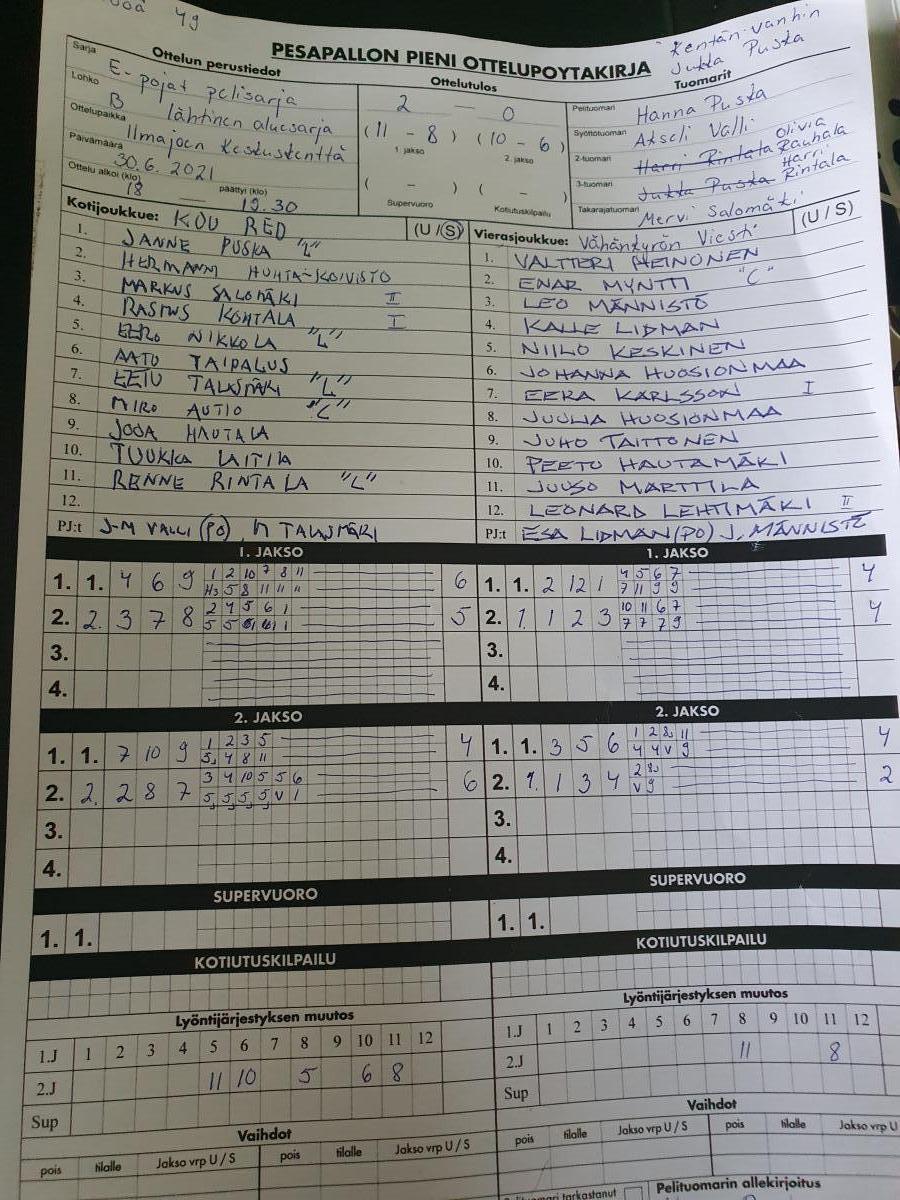 49
Kentän vanhin
Jukka Puska
PESAPALLON PIENI OTTELUPOYTAKIRJA
Ottelun perustiedot
Sarja E-pojat pelisarja
Lohko B läntinen aluesarja
Ottelupaikka Ilmajoen Keskuskenttä
Päivämäärä 30.6.2021
Ottelu alkoi (klo) 18 — päättyi (klo) 19.30
Ottelutulos
2 — 0
(11 – 8) (10 – 6)
1. jakso 2. jakso
( – ) ( – )
Supervuoro Kotiutuskilpailu
Tuomarit
Pelituomari Hanna Puska
Syöttötuomari Akseli Valli
2-tuomari Harri Rintala Olivia Rauhala
3-tuomari Jukka Puska Harri Rintala
Takarajatuomari Mervi Salomäki
Kotijoukkue: KOU RED (U / S)
1. JANNE PUSKA "L"
2. HERMANNI HUHTA-KOIVISTO
3. MARKUS SALOMÄKI II
4. RASMUS KOHTALA I
5. EERO NIKKOLA "L"
6. AATU TAIPALUS
7. EETU TALASMÄKI "L"
8. MIRO AUTIO "C"
9. JOOA HAUTALA
10. TUUKKA LAITILA
11. RENNE RINTALA "L"
12.
PJ:t J-M VALLI (PO), M TALASMÄKI
Vierasjoukkue: Vähänkyrön Viesti (U / S)
1. VALTTERI HEINONEN
2. EINAR MYNTTI "C"
3. LEO MÄNNISTÖ
4. KALLE LIDMAN
5. NIILO KESKINEN
6. JOHANNA HUOSIONMAA
7. EERA KARLSSON I
8. JUULIA HUOSIONMAA
9. JUHO TAITTONEN
10. PEETU HAUTAMÄKI
11. JUUSO MARTTILA
12. LEONARD LEHTIMÄKI II
PJ:t ESA LIDMAN (PO) J. MÄNNISTÖ
1. JAKSO
1. 1. 4 6 9 1 2 10 7 8 11 6
H3 5 8 11 11 11
2. 2. 3 7 8 2 4 5 6 1 5
3.
4.
1. JAKSO
1. 1. 2 12 1 4 5 6 7 4
7 11 9 9
2. 1. 1 2 3 10 11 6 7 4
7 7 7 9
3.
4.
2. JAKSO
1. 1. 7 10 9 1 2 3 5 4
5 4 8 11
2. 2. 2 8 7 3 4 10 5 5 6 6
5 5 5 5 V 1
3.
4.
2. JAKSO
1. 1. 3 5 6 1 2 8 11 4
4 4 V 9
2. 1. 1 3 4 2 8 2
V 9
3.
4.
SUPERVUORO
1. 1.
SUPERVUORO
1. 1.
KOTIUTUSKILPAILU
KOTIUTUSKILPAILU
Lyöntijärjestyksen muutos
1.J 1 2 3 4 5 6 7 8 9 10 11 12
2.J 11 10 5 6 8
Sup
Lyöntijärjestyksen muutos
1.J 1 2 3 4 5 6 7 8 9 10 11 12
2.J 11 8
Sup
Vaihdot
pois tilalle Jakso vrp U / S pois tilalle Jakso vrp U / S
Vaihdot
pois tilalle Jakso vrp U / S pois tilalle Jakso vrp U
tarkastanut
Pelituomarin allekirjoitus